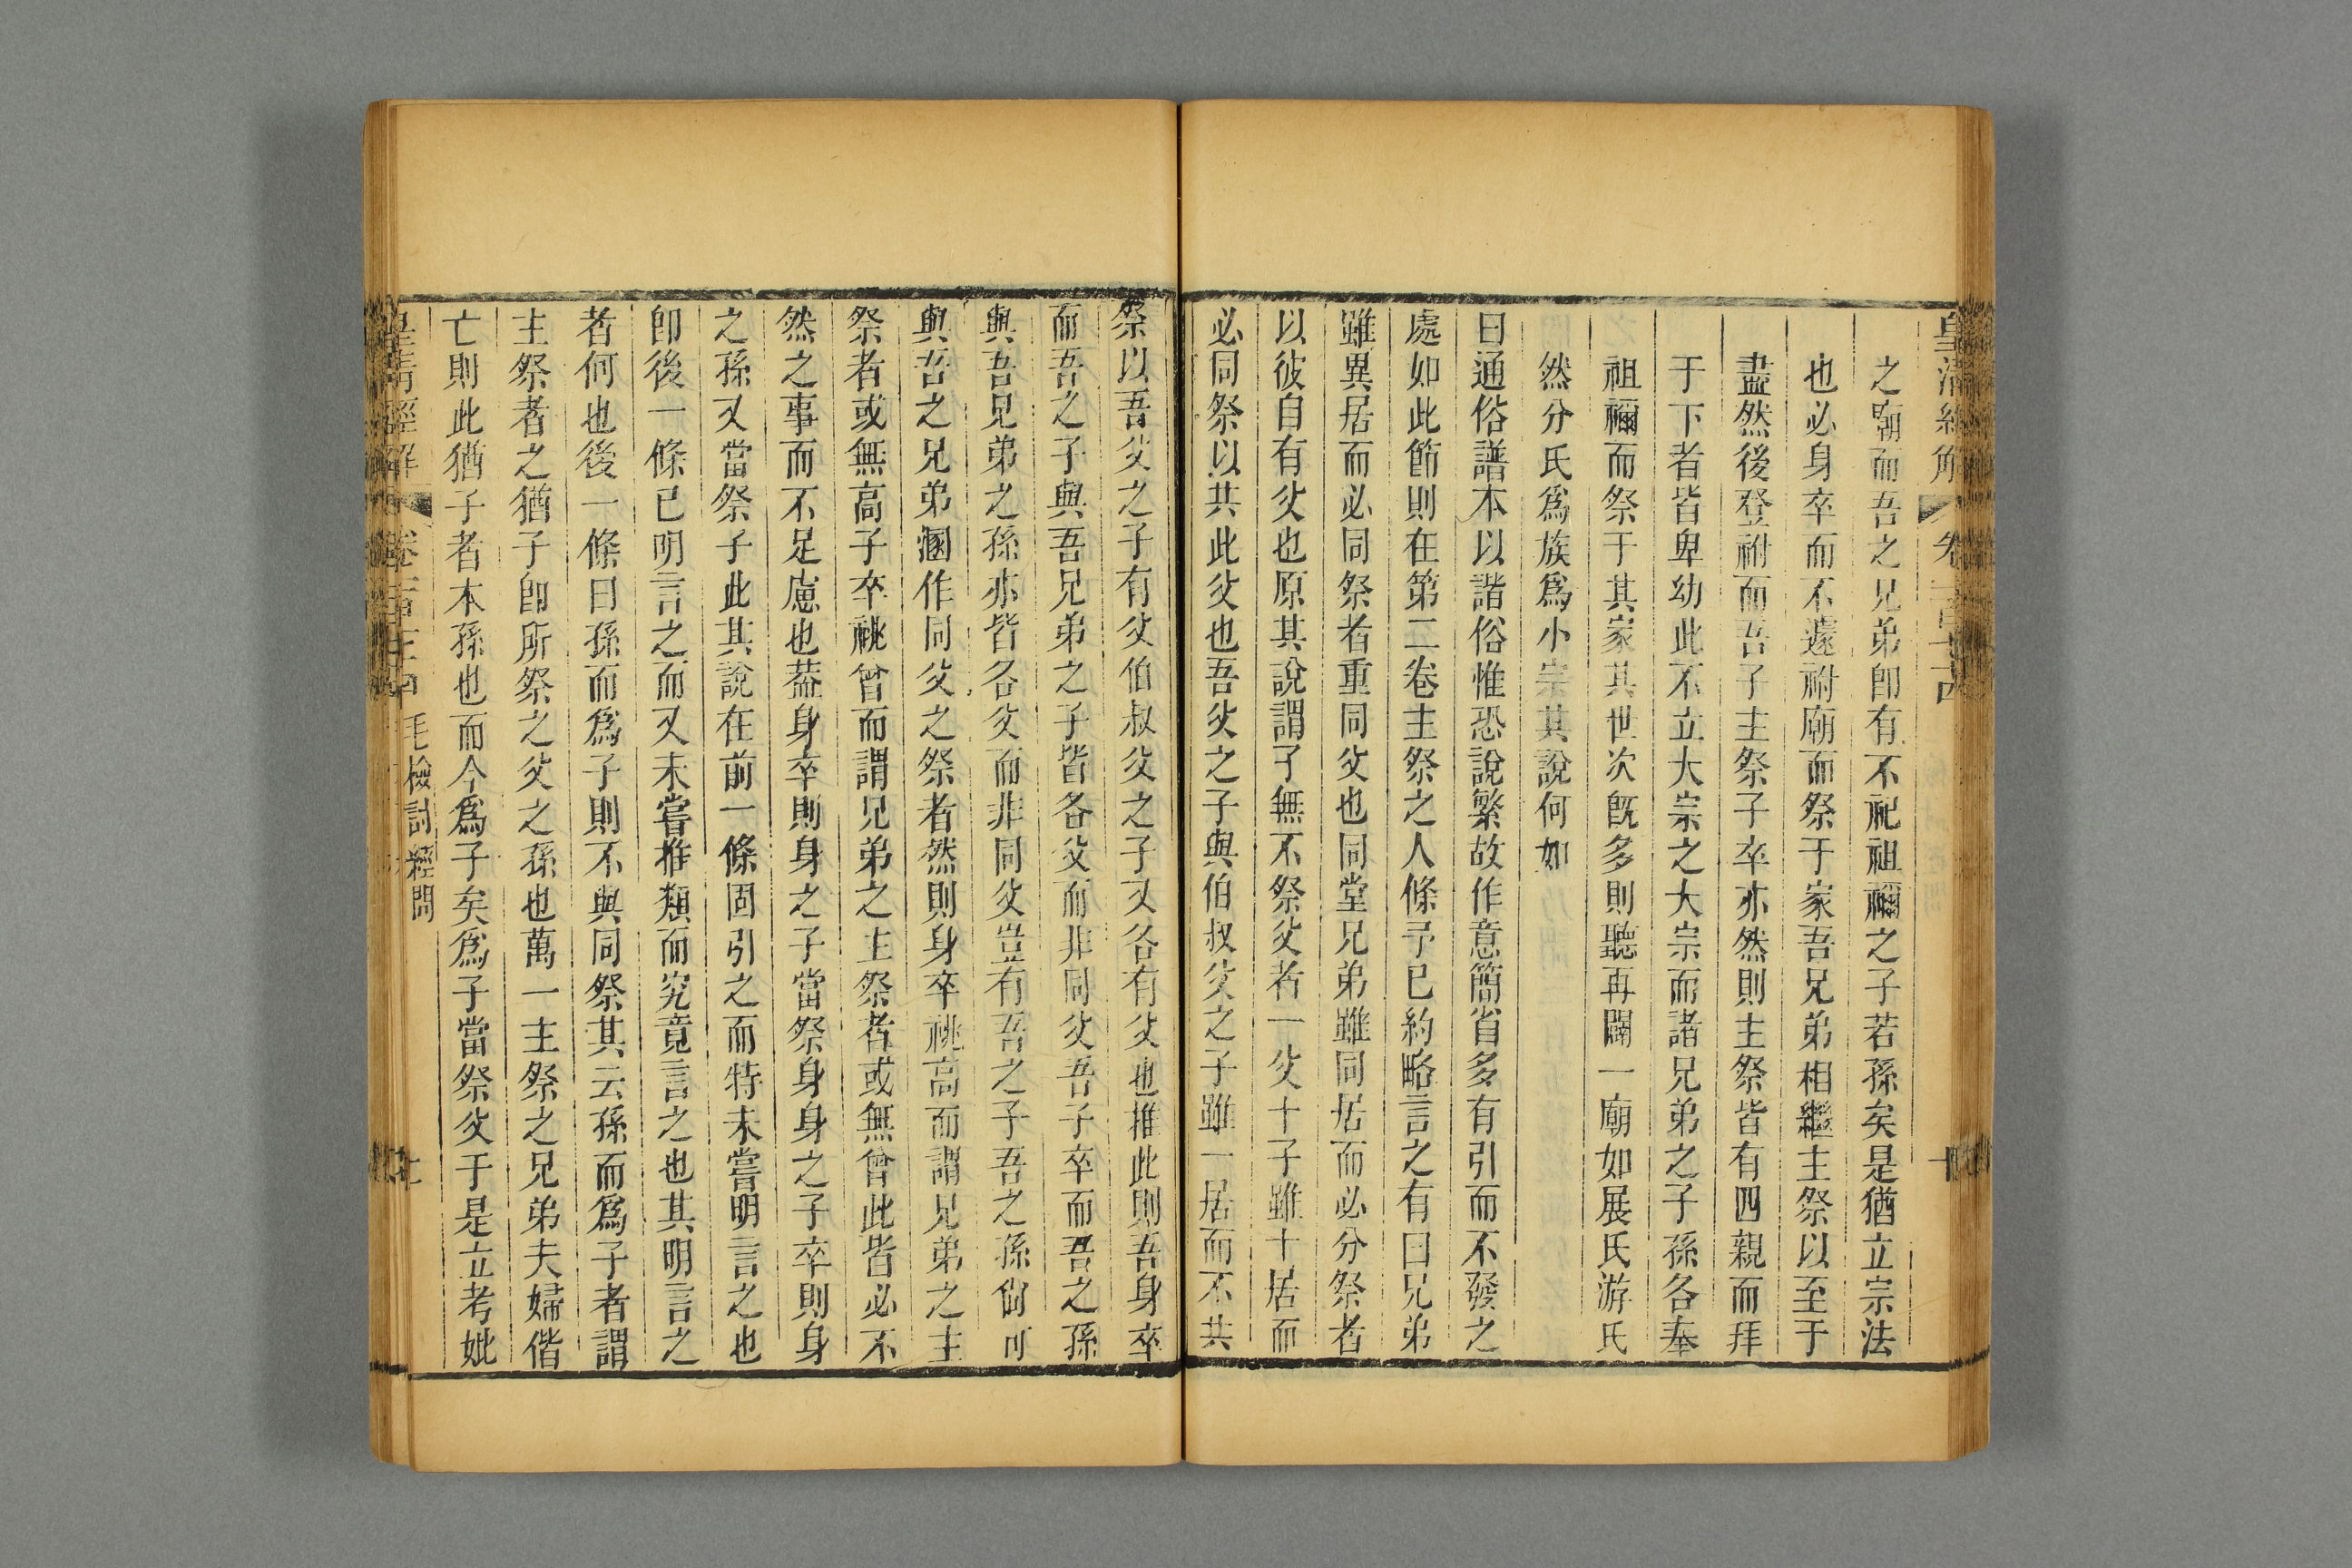 之廟而吾之兄弟卽有不祀祖禰之子若孫矣是猶立宗法
也必身卒而不遽祔廟而祭于家吾兄弟相繼主祭以至于
盡然後登祔而吾子主祭子卒亦然則主祭皆有四親而拜
于下者皆卑幼此不立大宗之大宗而諸兄弟之子孫各奉
祖禰而祭于其家其世次旣多則聽再闢一廟如展氏游氏
然分氏爲族爲小宗其說何如
曰通俗譜本以諧俗惟恐說繁故作意簡省多有引而不發之
處如此節則在第二卷主祭之人條予已約略言之有曰兄弟
雖異居而必同祭者重同父也同堂兄弟雖同居而必分祭者
以彼自有父也原其說謂子無不祭父者一父十子雖十居而
必同祭以共此父也吾父之子與伯叔父之子雖一居而不共
祭以吾父之子有父伯叔父之子又各有父也推此則吾身卒
而吾之子與吾兄弟之子皆各父而非同父吾子卒而吾之孫
與吾兄弟之孫亦皆各父而非同父豈有吾之子吾之孫尙可
與吾之兄弟溷作同父之祭者然則身卒祧高而謂兄弟之主
祭者或無高子卒祧曾而謂兄弟之主祭者或無曾此皆必不
然之事而不足慮也葢身卒則身之子當祭身身之子卒則身
之孫又當祭子此其說在前一條固引之而特未嘗明言之也
卽後一條已明言之而又未嘗推類而究竟言之也其明言之
者何也後一條曰孫而爲子則不與同祭其云孫而爲子者謂
主祭者之猶子卽所祭之父之孫也萬一主祭之兄弟夫婦偕
亡則此猶子者本孫也而今爲子矣爲子當祭父于是立考妣
皇清經解
毛檢討經問